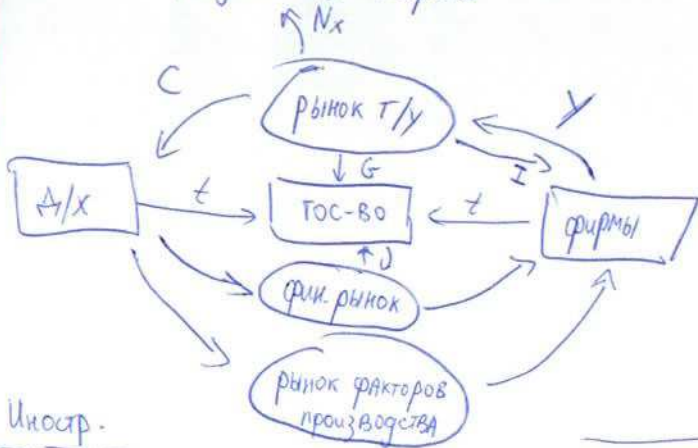 Nx
C
рынок т/у
Y
G
I
Д/Х
t
гос-во
t
фирмы
фин. рынок
рынок факторов
производства
Иностр.